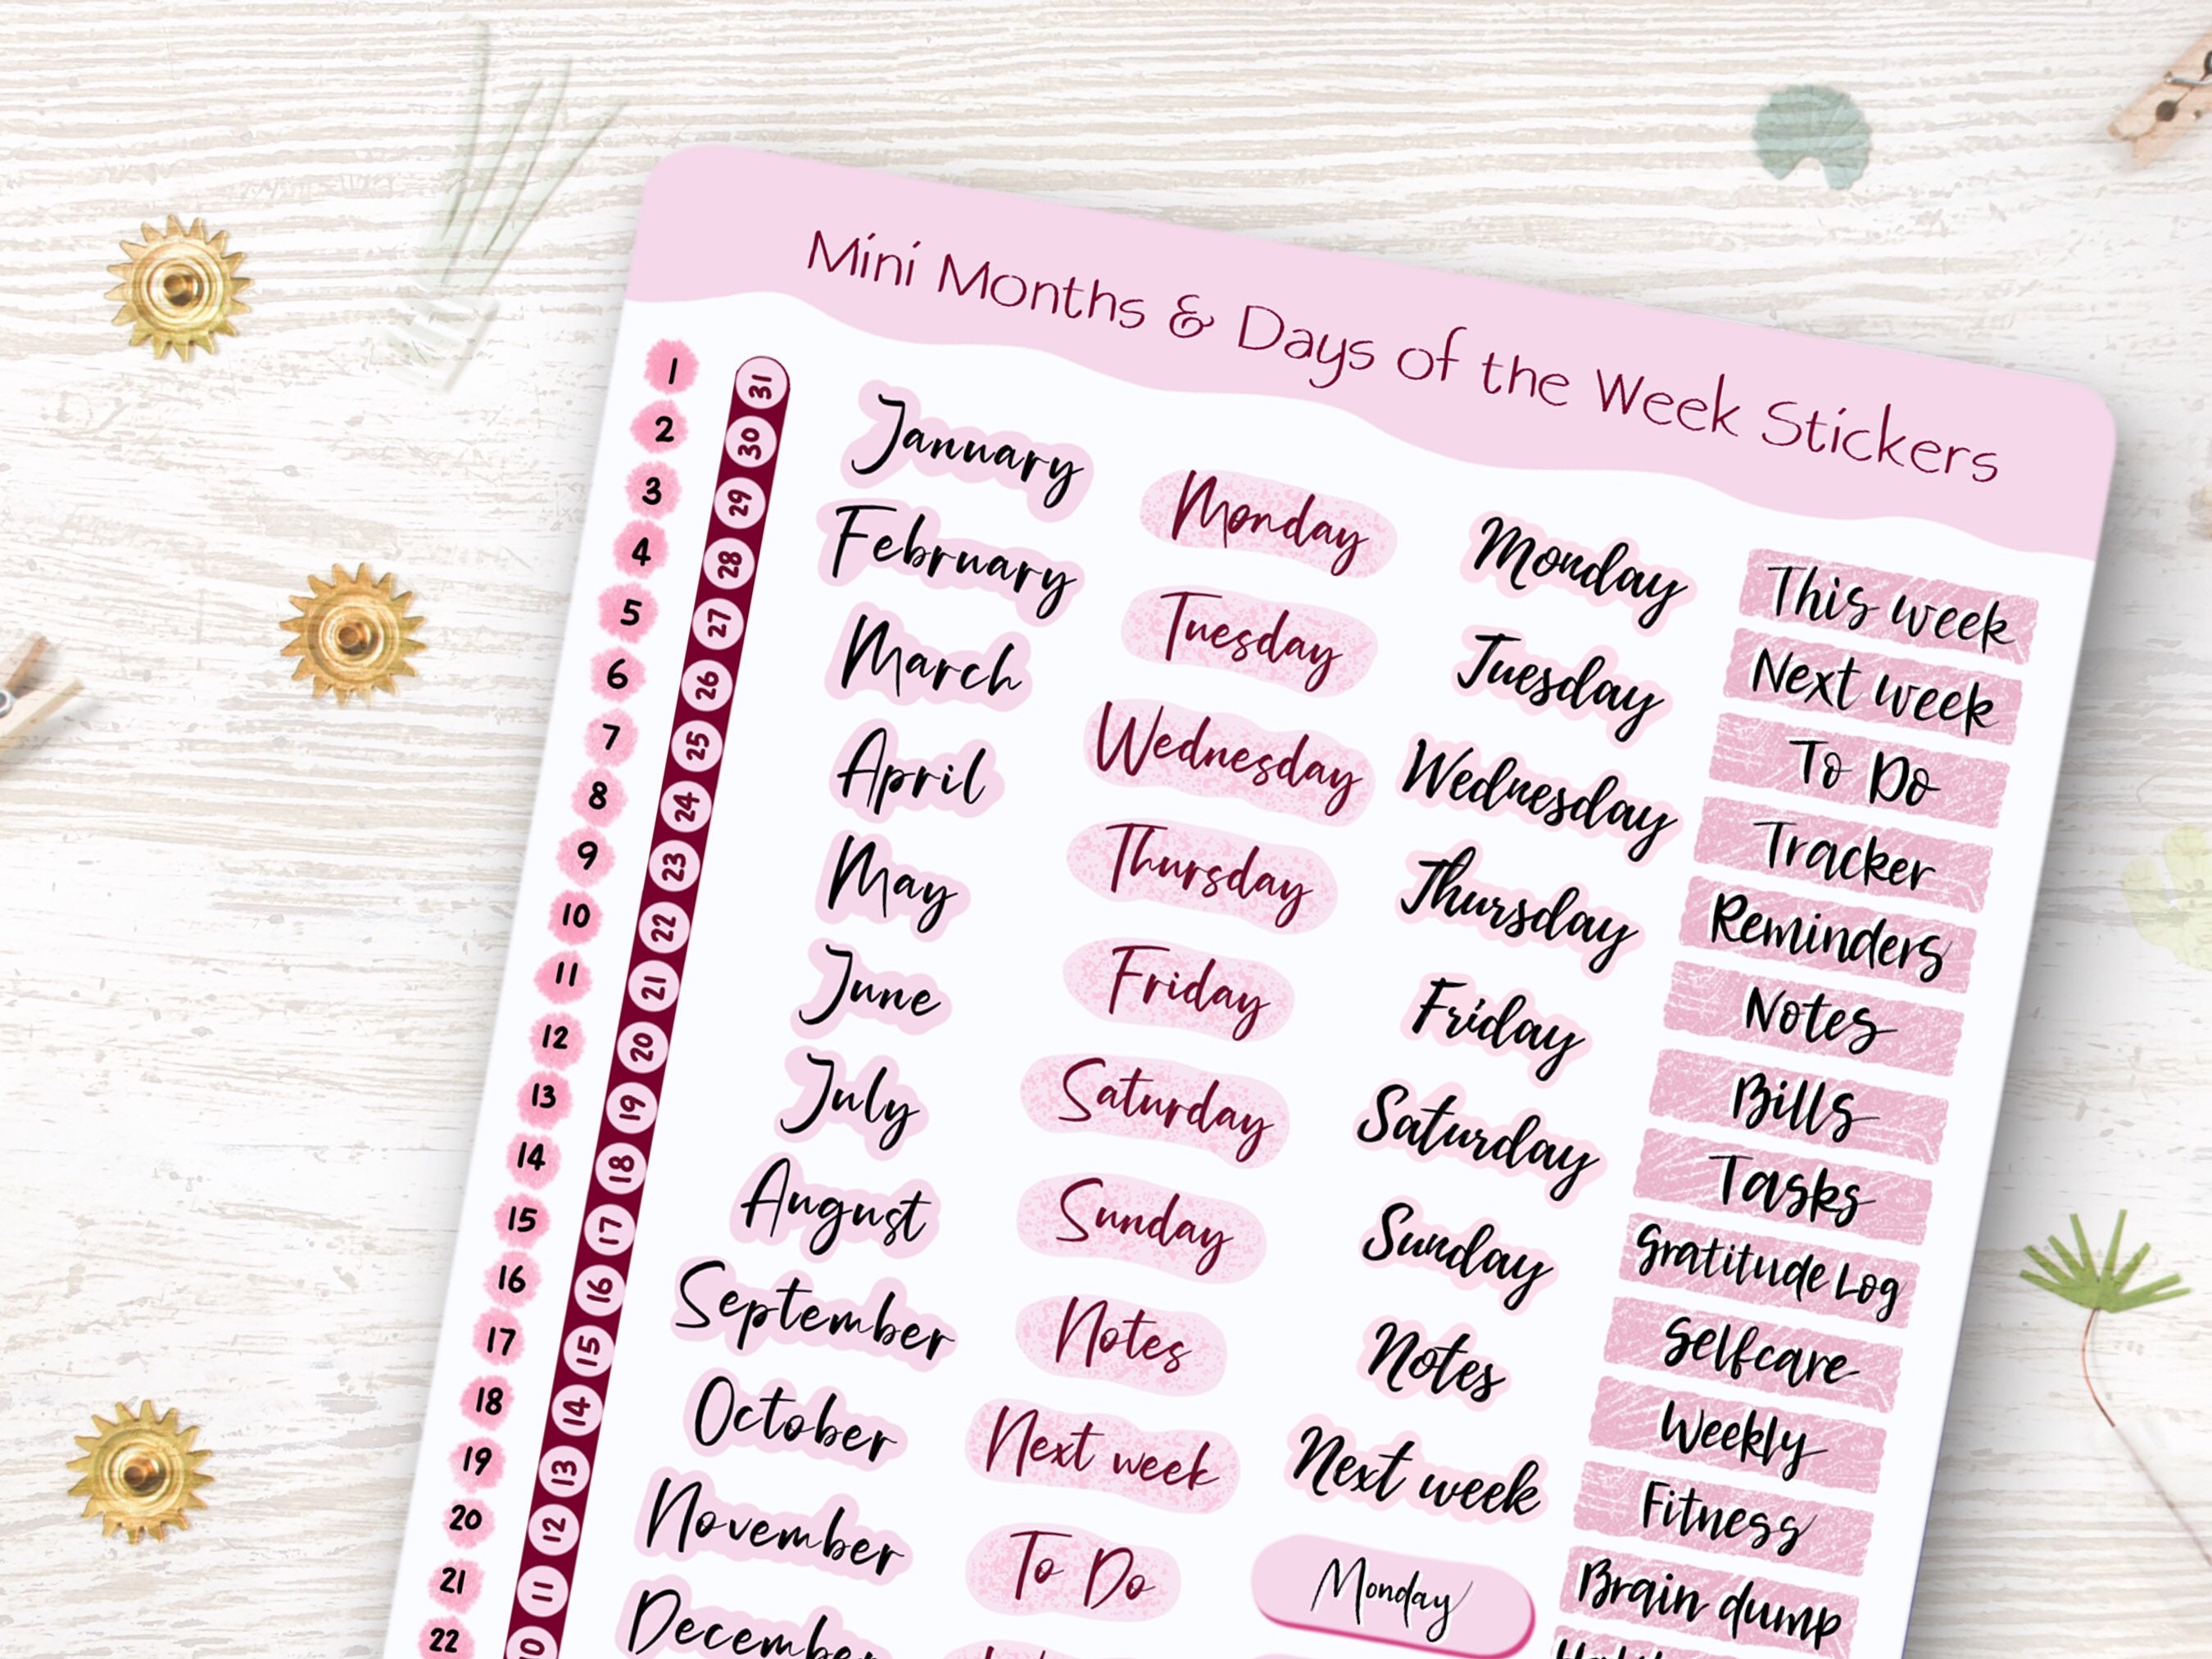 Mini Months & Days of the Week Stickers
1
2
3
4
5
6
7
8
9
10
11
12
13
14
15
16
17
18
19
20
21
22
31
30
29
28
27
26
25
24
23
22
21
20
19
18
17
16
15
14
13
12
11
January
February
March
April
May
June
July
August
September
October
November
December
Monday
Tuesday
Wednesday
Thursday
Friday
Saturday
Sunday
Notes
Next week
To Do
Monday
Tuesday
Wednesday
Thursday
Friday
Saturday
Sunday
Notes
Next week
Monday
This week
Next week
To Do
Tracker
Reminders
Notes
Bills
Tasks
Gratitude Log
Selfcare
Weekly
Fitness
Brain dump